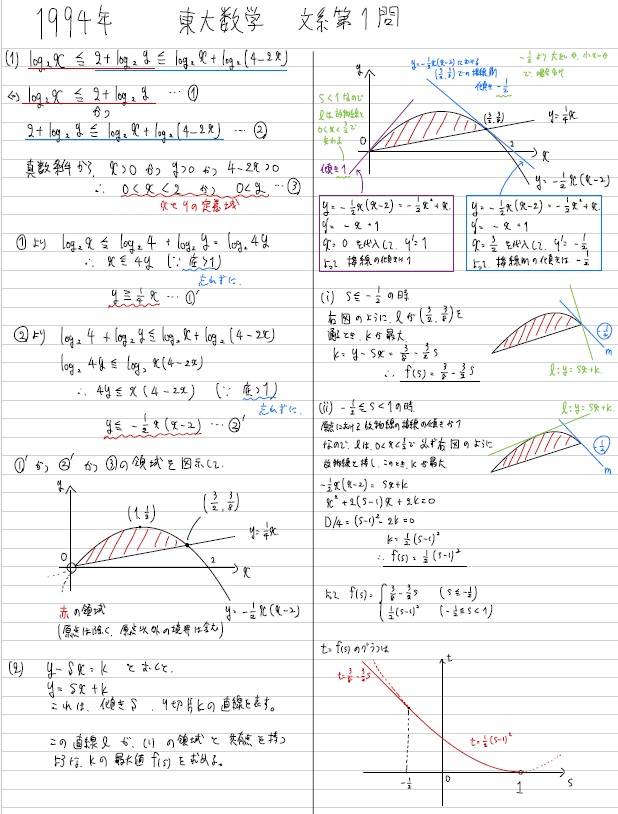 1994年 東大数学 文系第1問
(1) log₂x ≦ 2+log₂y ≦ log₂x+log₂(4-2x)
⇔ log₂x ≦ 2+log₂y … ①
かつ
2+log₂y ≦ log₂x+log₂(4-2x) … ②
真数条件から, x>0 かつ y>0 かつ 4-2x>0
∴ 0<x<2 かつ 0<y … ③
xとyの定義域
①より log₂x ≦ log₂4 + log₂y = log₂4y
∴ x ≦ 4y (∵ 底>1)
忘れずに.
y ≧ 1/4 x … ①'
②より log₂4 + log₂y ≦ log₂x + log₂(4-2x)
log₂4y ≦ log₂x(4-2x)
∴ 4y ≦ x(4-2x) (∵ 底>1)
忘れずに.
y ≦ -1/2 x(x-2) … ②'
①' かつ ②' かつ ③の領域を図示して.
y
(1, 1/2)
(3/2, 3/8)
y=1/4 x
0
2
x
y=-1/2 x(x-2)
赤の領域
(原点は除く, 原点以外の境界は含む)
(2) y-sx=k とおくと.
y=sx+k
これは, 傾きs, y切片kの直線を表す。
この直線lが, (1)の領域と共有点を持つ
ような, kの最大値f(s)を求める。
y=-1/2 x(x-2)における
(3/2, 3/8)での接線mの
傾き -1/2
-1/2より大きいか, 小さいか
で, 場合分け
s<1なので
lは放物線と
0<x<3/2で
傾き1
y
0
(3/2, 3/8)
y=1/4 x
2
x
y=-1/2 x(x-2)
y=-1/2 x(x-2)=-1/2 x²+x
y'=-x+1
x=0 を代入して, y'=1
よって 接線の傾きは1
y=-1/2 x(x-2)=-1/2 x²+x
y'=-x+1
x=3/2 を代入して, y'=-1/2
よって 接線mの傾きは -1/2
(i) s≦-1/2の時
右図のように, lが(3/2, 3/8)を
通るとき, kが最大
k=y-sx=3/8-3/2 s
∴ f(s)=3/8-3/2 s
-1/2
m
l:y=sx+k.
(ii) -1/2≦s<1の時
原点における放物線の接線の傾きが1
なので, lは, 0<x≦3/2で必ず右図のように
放物線と接し, このとき, kが最大
-1/2 x(x-2)=sx+k
x²+2(s-1)x+2k=0
D/4=(s-1)²-2k=0
k=1/2(s-1)²
∴ f(s)=1/2(s-1)²
l:y=sx+k
-1/2
m
よって f(s)={3/8-3/2 s (s≦-1/2)
1/2(s-1)² (-1/2≦s<1)
t=f(s)のグラフは
t
t=3/8-3/2 s
t=1/2(s-1)²
-1/2
0
1
s